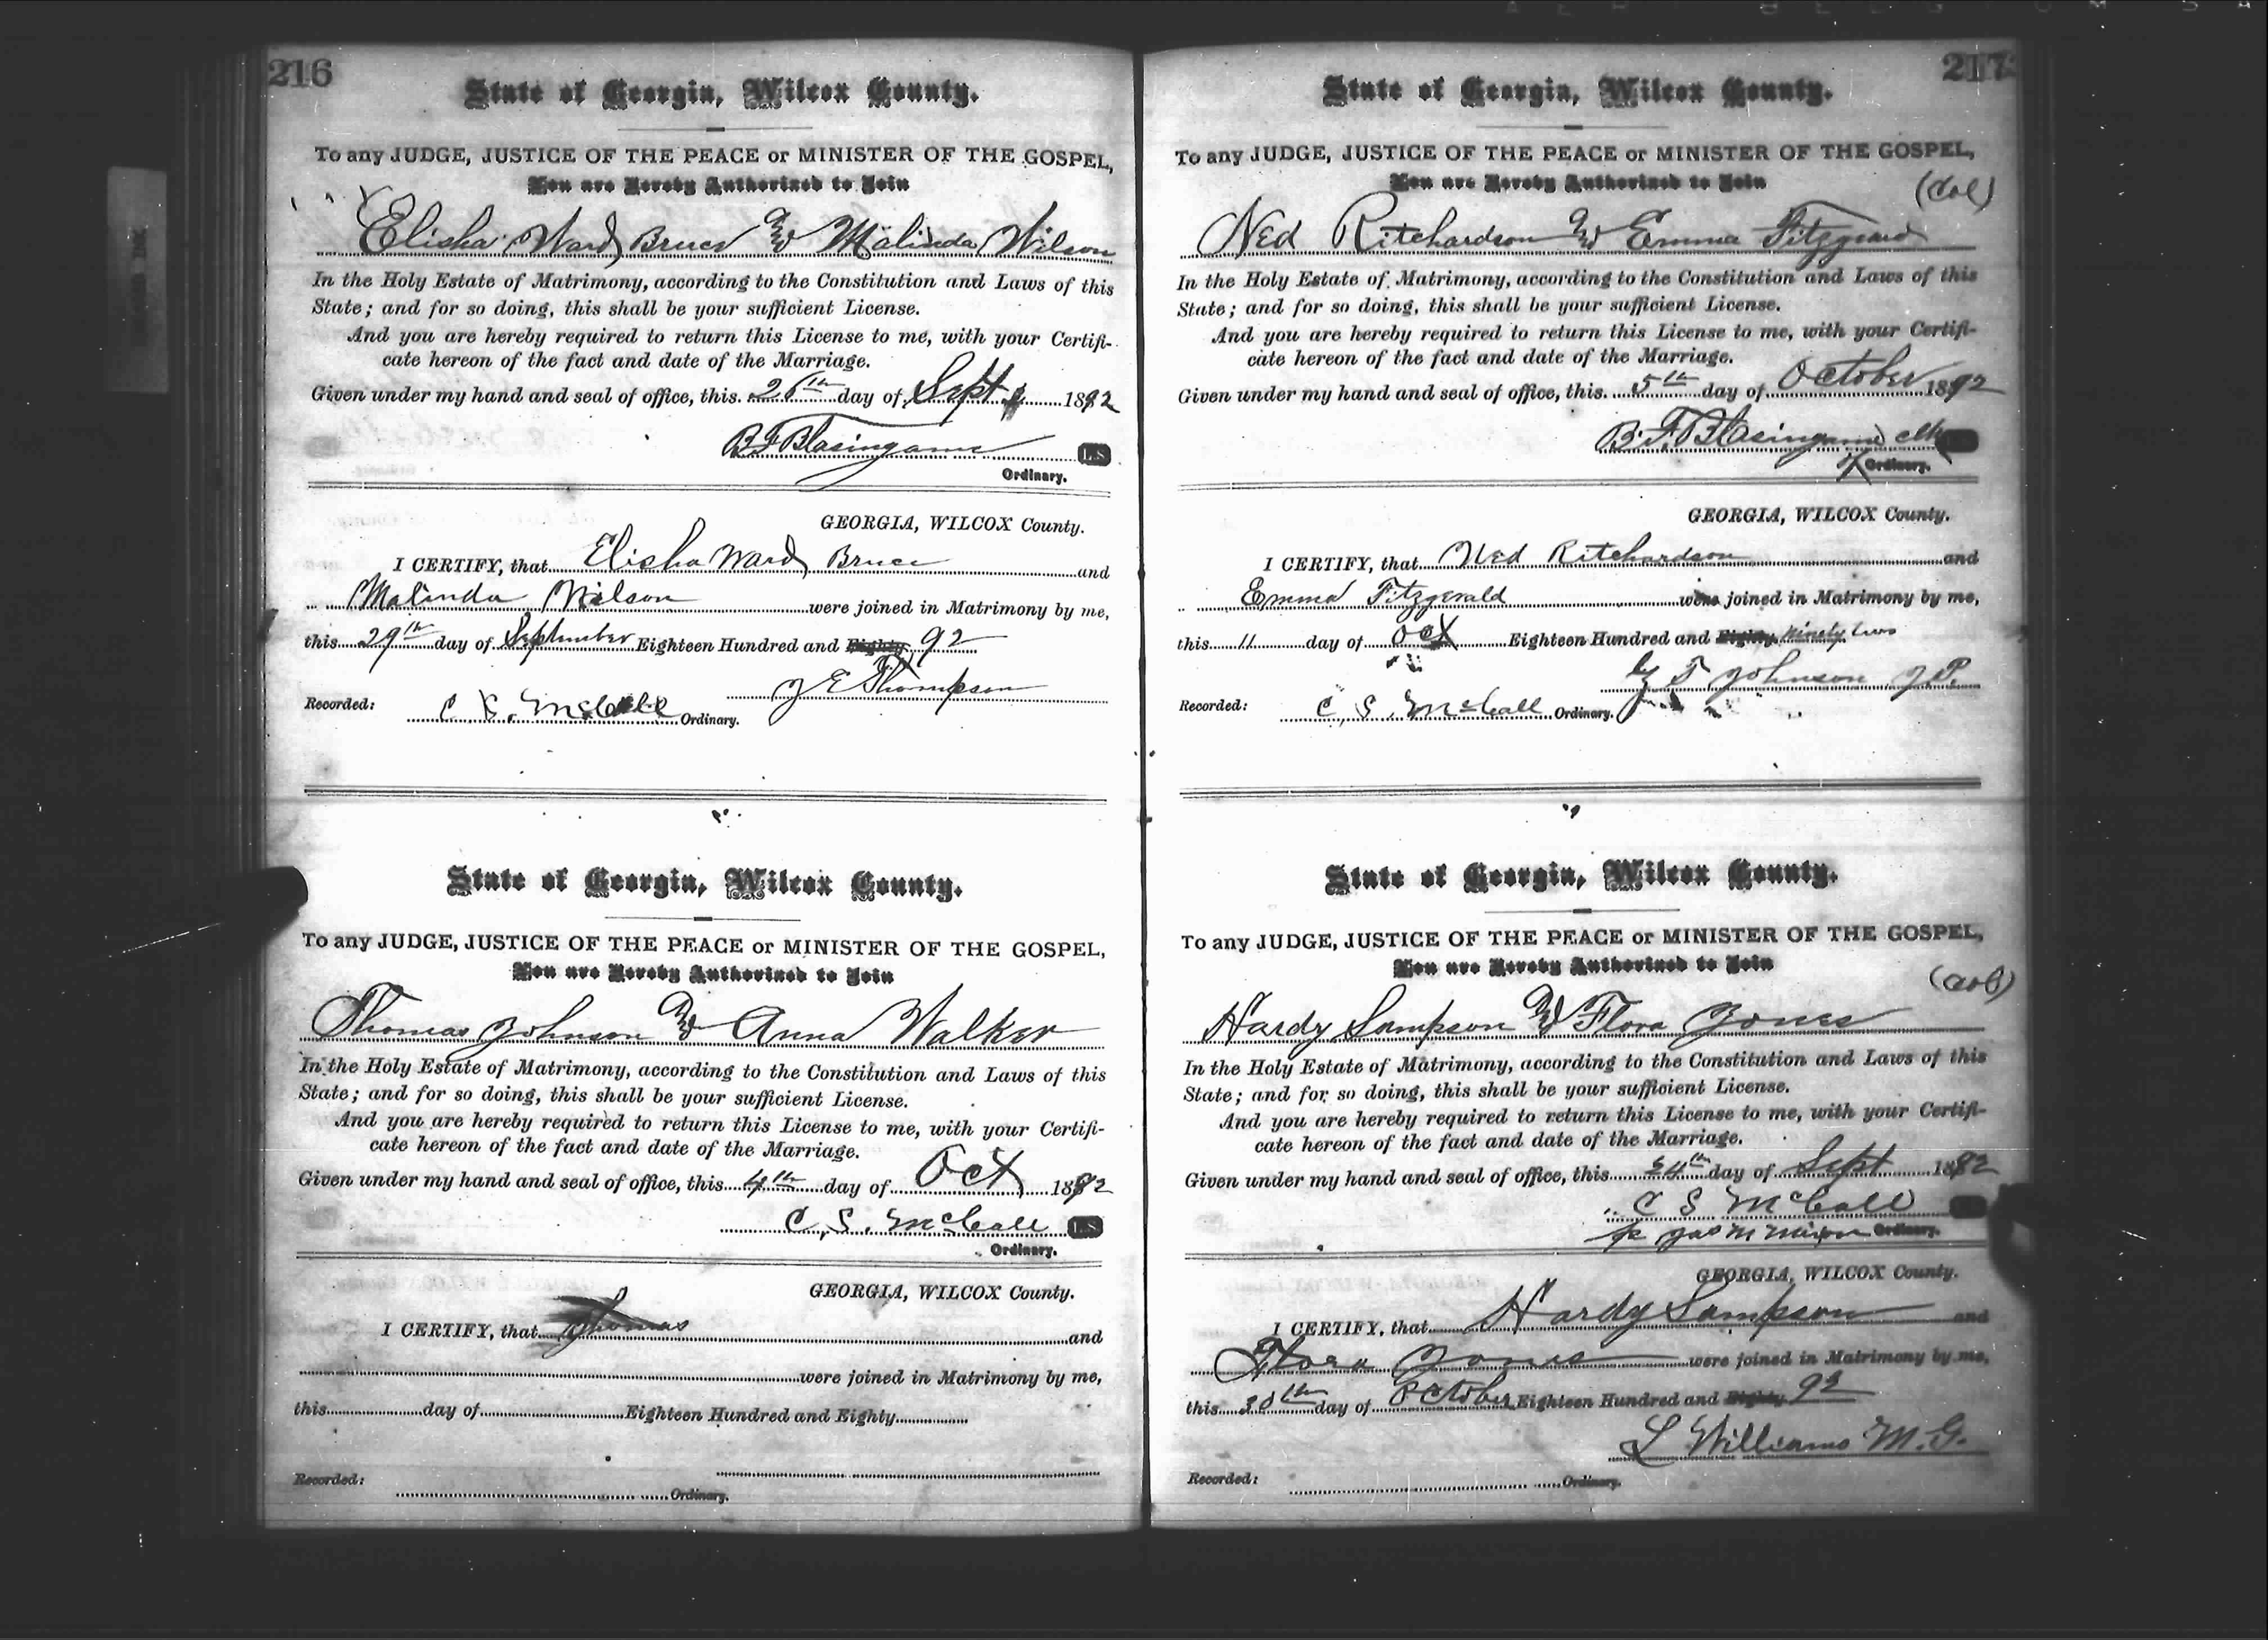 216
State of Georgia, Wilcox County.
To any JUDGE, JUSTICE OF THE PEACE or MINISTER OF THE GOSPEL,
You are Hereby Authorized to Join
Elisha Ward Bruce & Malinda Wilson
In the Holy Estate of Matrimony, according to the Constitution and Laws of this
State; and for so doing, this shall be your sufficient License.
And you are hereby required to return this License to me, with your Certifi-
cate hereon of the fact and date of the Marriage.
Given under my hand and seal of office, this 26th day of Sept 1892
B F Blasingame L.S
Ordinary.
GEORGIA, WILCOX County.
I CERTIFY, that Elisha Ward Bruce and
Malinda Wilson were joined in Matrimony by me,
this 29th day of September Eighteen Hundred and Eighty 92
J E Thompson
Recorded: C. S. McCall Ordinary.
State of Georgia, Wilcox County.
To any JUDGE, JUSTICE OF THE PEACE or MINISTER OF THE GOSPEL,
You are Hereby Authorized to Join
Thomas Johnson & Anna Walker
In the Holy Estate of Matrimony, according to the Constitution and Laws of this
State; and for so doing, this shall be your sufficient License.
And you are hereby required to return this License to me, with your Certifi-
cate hereon of the fact and date of the Marriage.
Given under my hand and seal of office, this 4th day of Oct 1892
C. S. McCall L.S
Ordinary.
GEORGIA, WILCOX County.
I CERTIFY, that Thomas and
were joined in Matrimony by me,
this day of Eighteen Hundred and Eighty
Recorded:
Ordinary.
217
State of Georgia, Wilcox County.
To any JUDGE, JUSTICE OF THE PEACE or MINISTER OF THE GOSPEL,
You are Hereby Authorized to Join
(Col)
Ned Ritchardson & Emma Fitzgerald
In the Holy Estate of Matrimony, according to the Constitution and Laws of this
State; and for so doing, this shall be your sufficient License.
And you are hereby required to return this License to me, with your Certifi-
cate hereon of the fact and date of the Marriage.
Given under my hand and seal of office, this 5th day of October 1892
B. F. Blasingame clk
Ordinary.
GEORGIA, WILCOX County.
I CERTIFY, that Ned Ritchardson and
Emma Fitzgerald were joined in Matrimony by me,
this 11 day of Oct Eighteen Hundred and Eighty Ninety two
T Johnson J.P.
Recorded: C. S. McCall Ordinary.
State of Georgia, Wilcox County.
To any JUDGE, JUSTICE OF THE PEACE or MINISTER OF THE GOSPEL,
You are Hereby Authorized to Join
(Col)
Hardy Sampson & Flora Jones
In the Holy Estate of Matrimony, according to the Constitution and Laws of this
State; and for so doing, this shall be your sufficient License.
And you are hereby required to return this License to me, with your Certifi-
cate hereon of the fact and date of the Marriage.
Given under my hand and seal of office, this day of Sept 1892
C S McCall
Jas M Ordinary.
GEORGIA, WILCOX County.
I CERTIFY, that Hardy Sampson and
Flora Jones were joined in Matrimony by me,
this 30th day of October Eighteen Hundred and Eighty 92
L Williams M.G.
Recorded: Ordinary.